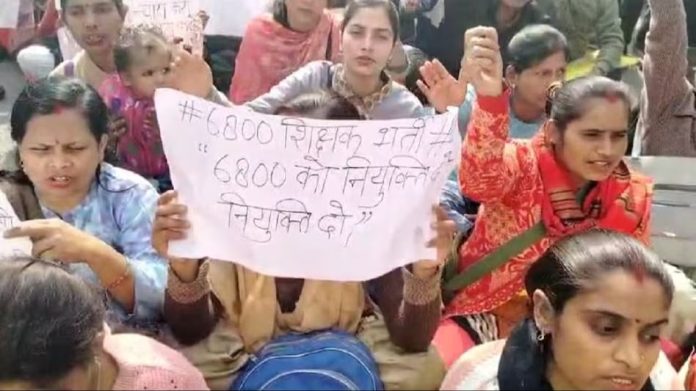 #6800 शिक्षक भर्ती #
"6800 को नियुक्ति दो
नियुक्ति दो"